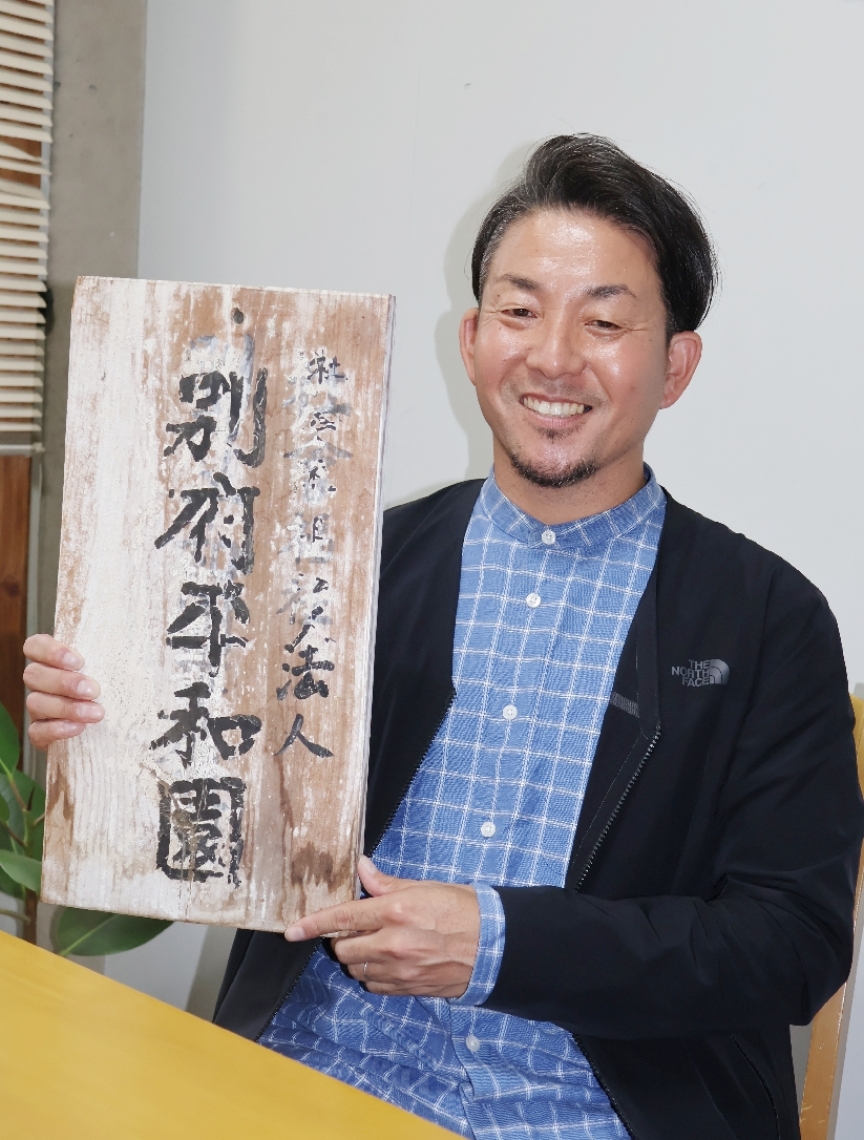 社会福祉法人
別府平和園
THE
NORTH
FACE